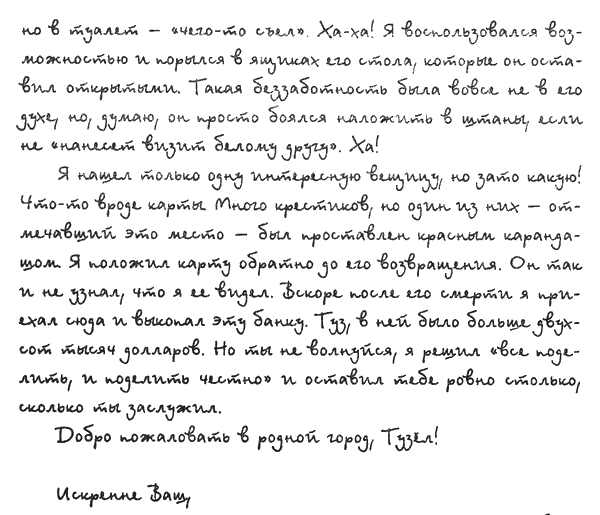 но в туалет — «чего-то съел». Ха-ха! Я воспользовался воз-
можностью и порылся в ящиках его стола, которые он оста-
вил открытыми. Такая беззаботность была вовсе не в его
духе, но, думаю, он просто боялся наложить в штаны, если
не «нанесет визит белому другу». Ха!
Я нашел только одну интересную вещицу, но зато какую!
Что-то вроде карты. Много крестиков, но один из них — от-
мечавший это место — был проставлен красным каранда-
шом. Я положил карту обратно до его возвращения. Он так
и не узнал, что я ее видел. Вскоре после его смерти я при-
ехал сюда и выкопал эту банку. Туз, в ней было больше двух-
сот тысяч долларов. Но ты не волнуйся, я решил «все поде-
лить, и поделить честно» и оставил тебе ровно столько,
сколько ты заслужил.
Добро пожаловать в родной город, Тузёл!
Искренне Ваш,